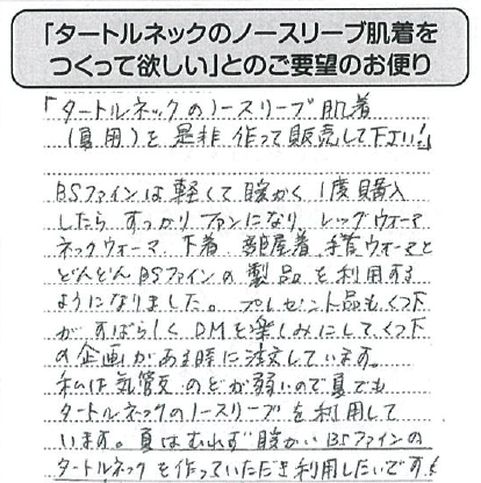 「タートルネックのノースリーブ肌着を
つくって欲しい」とのご要望のお便り
「タートルネックのノースリーブ肌着
(夏用)を是非作って販売して下さい!」
BSファインは軽くて暖かく1度購入
したらすっかりファンになり、レッグウォーマ
ネックウォーマ、下着、部屋着、手首ウォーマと
どんどんBSファインの製品を利用する
ようになりました。プレゼント品もくつ下
がすばらしくDMを楽しみにして、くつ下
の企画がある時に注文しています。
私は気管支、のどが弱いので夏でも
タートルネックのノースリーブを利用して
います。夏はむれず暖かいBSファインの
タートルネックを作っていただき利用したいです!